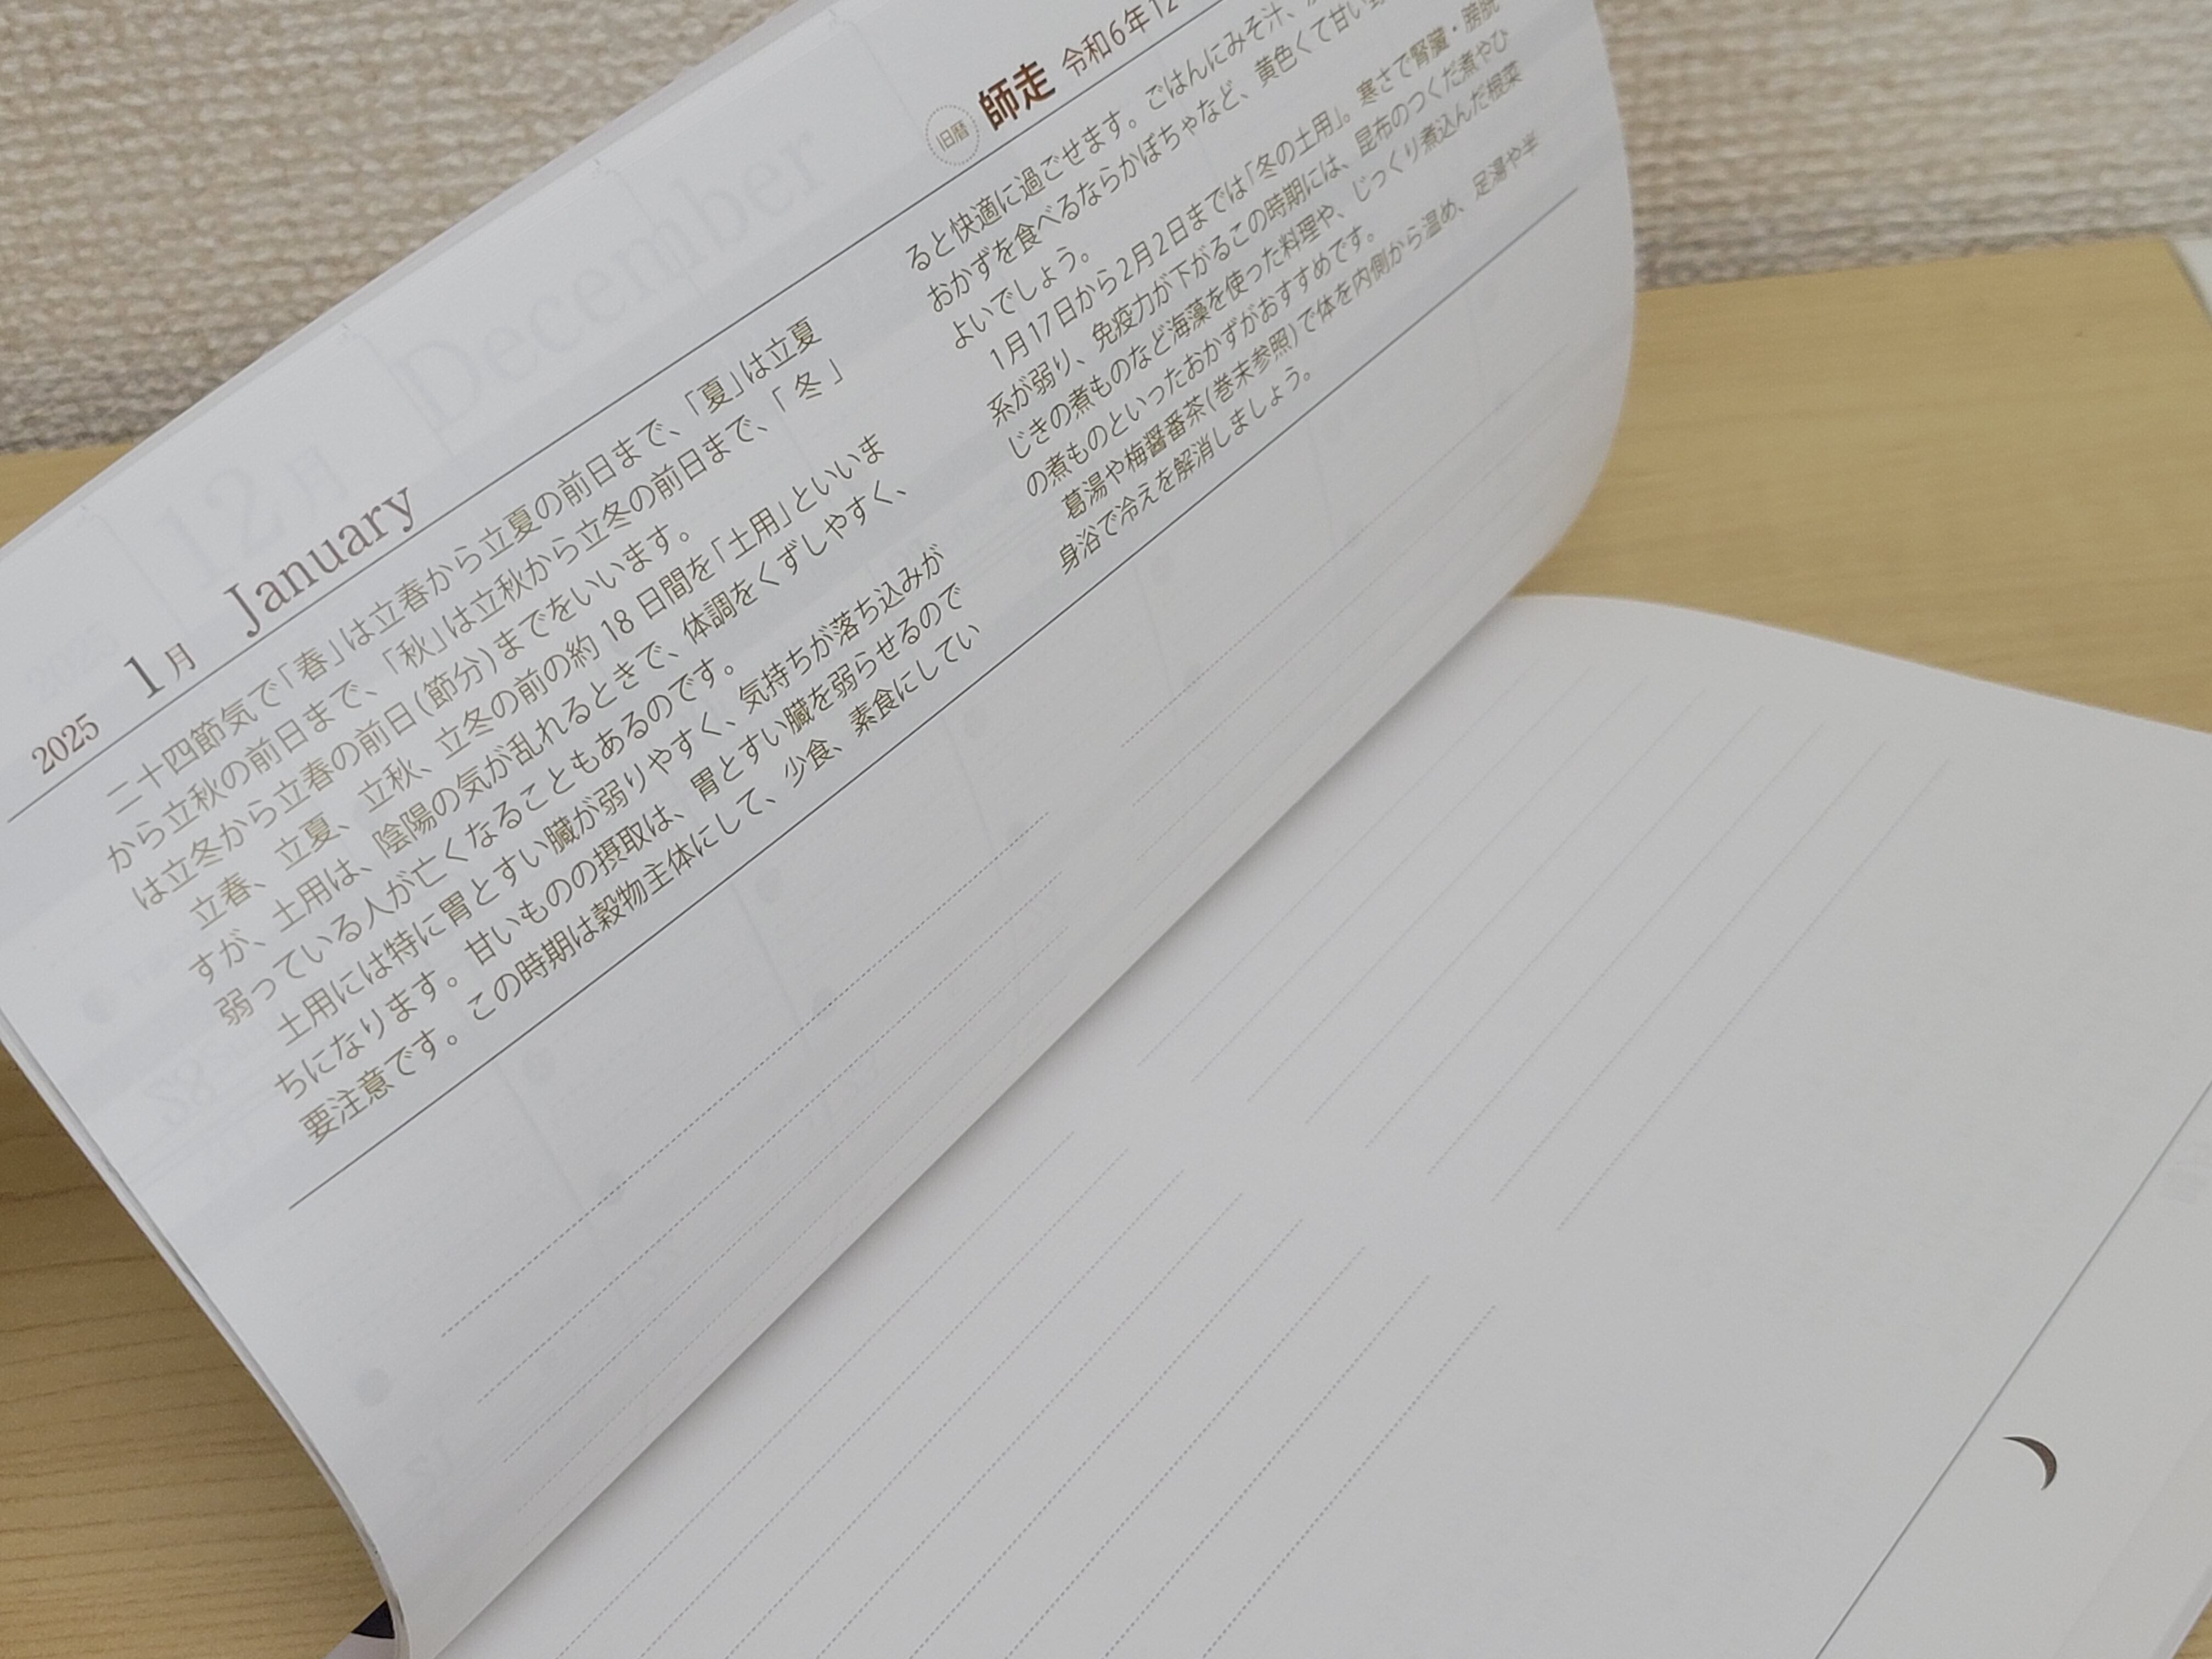 2025 1月 January
二十四節気で「春」は立春から立夏の前日まで、「夏」は立夏
から立秋の前日まで、「秋」は立秋から立冬の前日まで、「冬」
は立冬から立春の前日(節分)までをいいます。
立春、立夏、立秋、立冬の前の約 18 日間を「土用」といいま
すが、土用は、陰陽の気が乱れるときで、体調をくずしやすく、
弱っている人が亡くなることもあるのです。
土用には特に胃とすい臓が弱りやすく、気持ちが落ち込みが
ちになります。甘いものの摂取は、胃とすい臓を弱らせるので
要注意です。この時期は穀物主体にして、少食、素食にしてい
旧暦 師走 令和6年12
ると快適に過ごせます。ごはんにみそ汁、
おかずを食べるならかぼちゃなど、黄色くて甘い
よいでしょう。
1月17日から2月2日までは「冬の土用」。寒さで腎臓・膀胱
系が弱り、免疫力が下がるこの時期には、昆布のつくだ煮やひ
じきの煮ものなど海藻を使った料理や、じっくり煮込んだ根菜
の煮ものといったおかずがおすすめです。
葛湯や梅醤番茶(巻末参照)で体を内側から温め、足湯や半
身浴で冷えを解消しましょう。
12月 December
2025